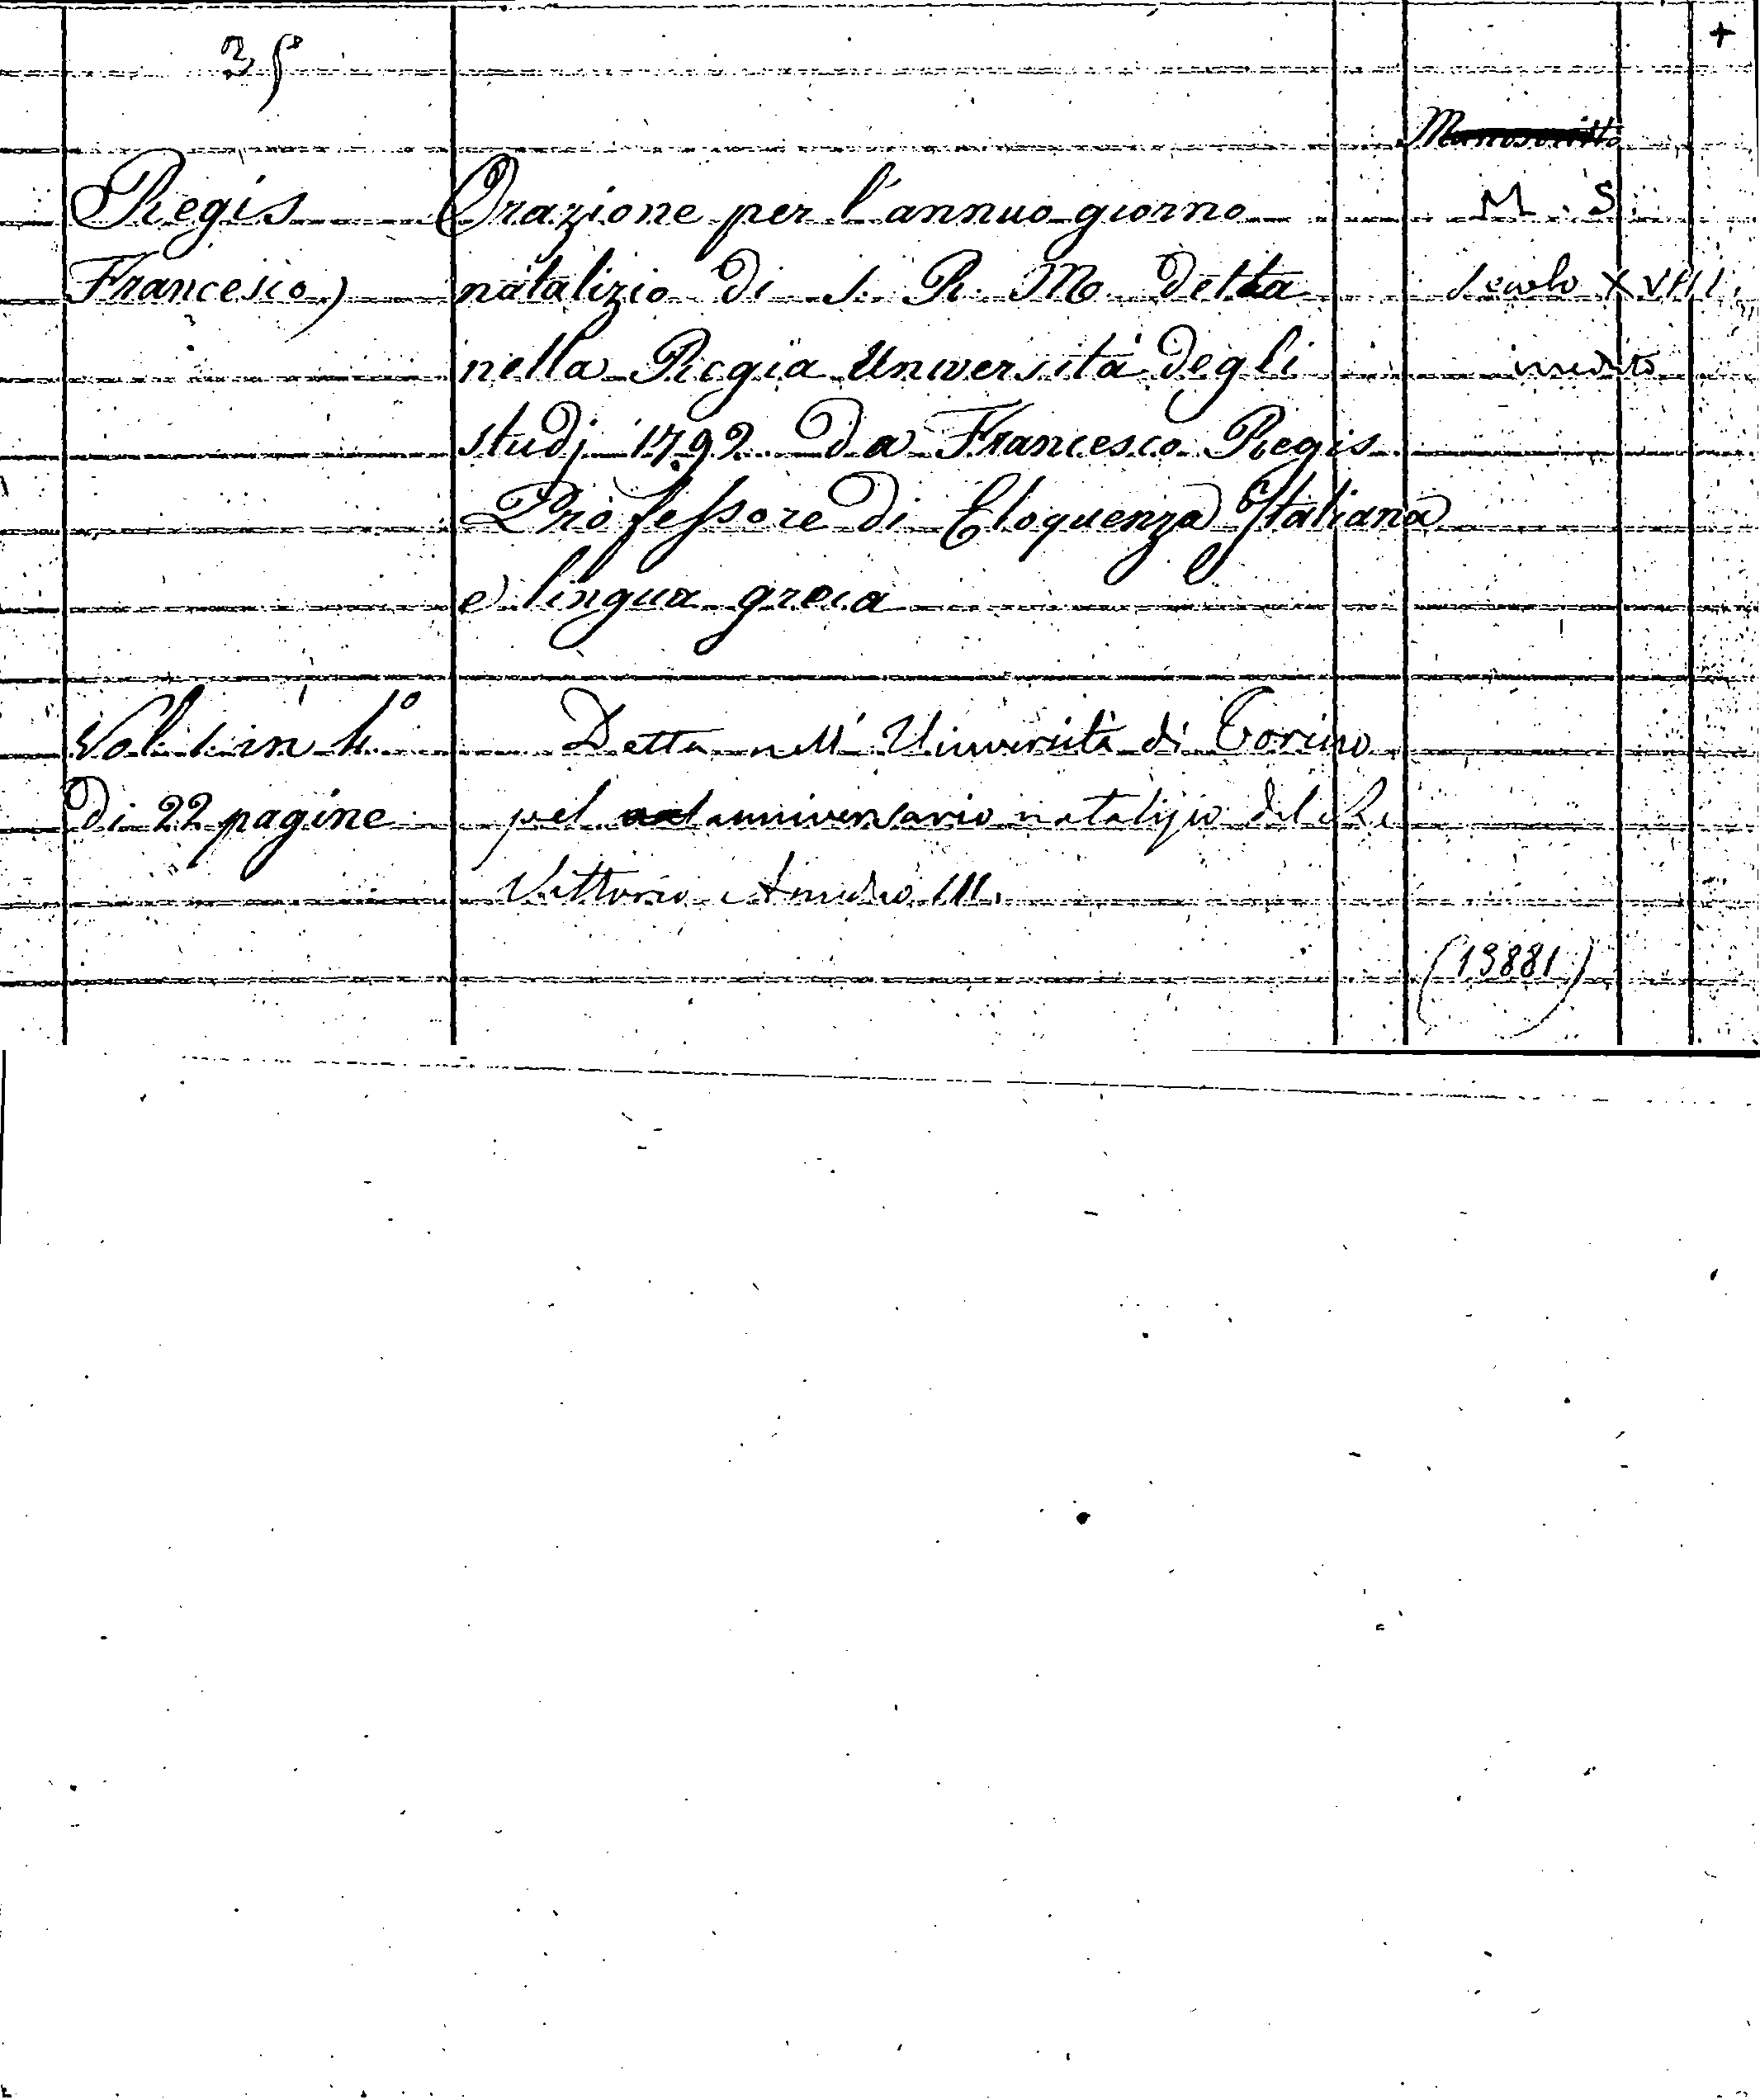 +
35
Manoscritto
Regis Orazione per l'annuo giorno M. S.
Francesco) natalizio di S. R. M. detta secolo XVIII,
nella Regia Università degli inedito
studj 1792. da Francesco Regis
Professore di Eloquenza Italiana
e lingua greca
Vol. 1. in 4.° Detta nell' Università di Torino
di 22 pagine pel anniversario natalizio del Re
Vittorio Amedeo III.
(19881)